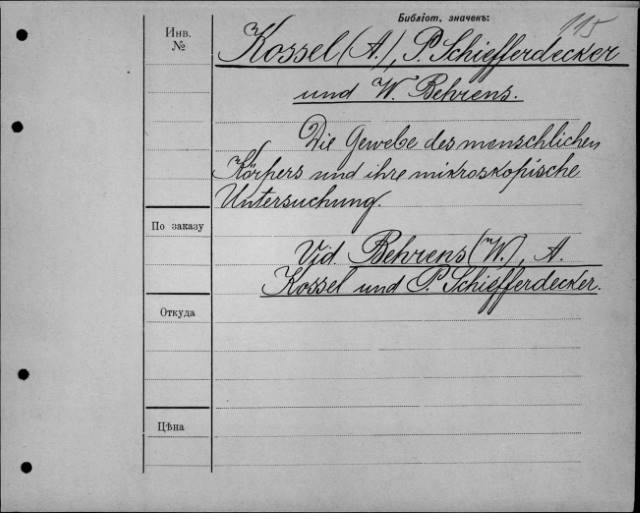 Библіот. значекъ:
115
Инв.
№
Kossel (A.), P. Schiefferdecker
und W. Behrens.
Die Gewebe des menschlichen
Körpers und ihre mikroskopische
Untersuchung.
По заказу
Vid. Behrens (W.), A.
Kossel und P. Schiefferdecker.
Откуда
Цѣна